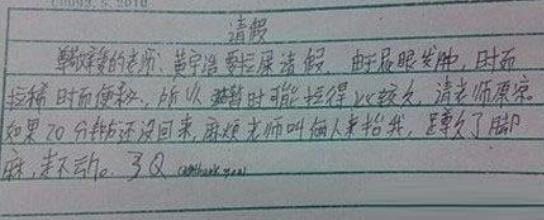 请假
尊敬的老师,黄宇浩要拉屎请假,由于屁眼发肿,时而
拉稀时而便秘,所以暂时可能拉得比较久,请老师原谅。
如果20分钟还没回来,麻烦老师叫俩人来抬我,蹲久了脚
麻,走不动。3Q